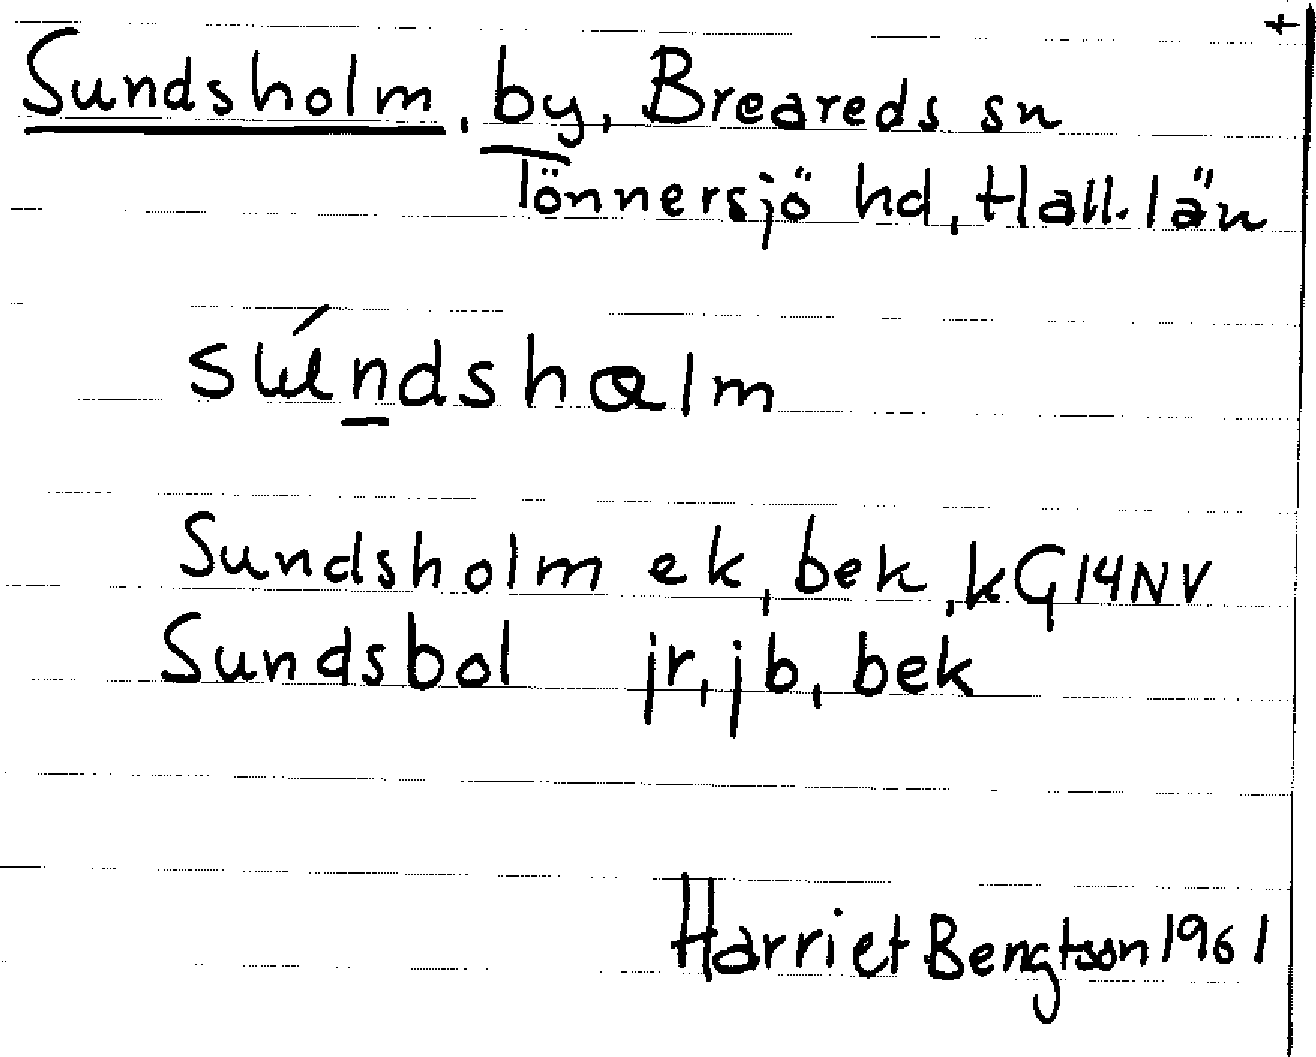 +
Sundsholm, by, Breareds sn
Tönnersjö hd, Hall. län
súndshɑlm
Sundsholm ek, bek, kG14NV
Sundsbol jr, jb, bek
Harriet Bengtson 1961